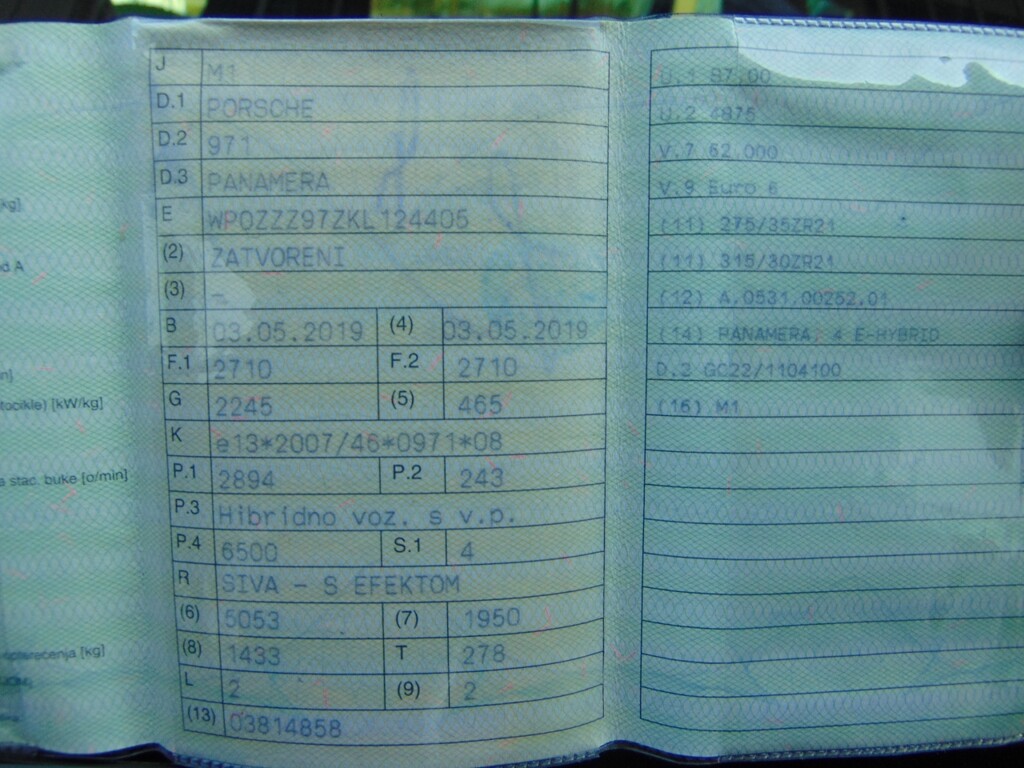 kg]
d A
n]
tocikle) [kW/kg]
a stac. buke [o/min]
opterećenja [kg]
J M1
D.1 PORSCHE
D.2 971
D.3 PANAMERA
E WP0ZZZ97ZKL124405
(2) ZATVORENI
(3) –
B 03.05.2019 (4) 03.05.2019
F.1 2710 F.2 2710
G 2245 (5) 465
K e13*2007/46*0971*08
P.1 2894 P.2 243
P.3 Hibridno voz. s v.p.
P.4 6500 S.1 4
R SIVA - S EFEKTOM
(6) 5053 (7) 1950
(8) 1433 T 278
L 2 (9) 2
(13) 03814858
U.1 87,00
U.2 4875
V.7 62.000
V.9 Euro 6
(11) 275/35ZR21
(11) 315/30ZR21
(12) A.0531.00252.01
(14) PANAMERA, 4 E-HYBRID
D.2 GC22/1104100
(16) M1